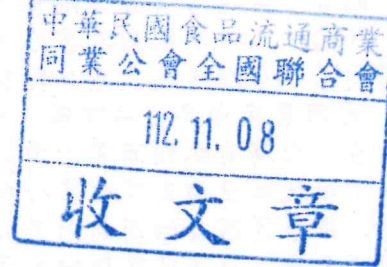 中華民國食品流通商業
同業公會全國聯合會
112.11.08
收文章